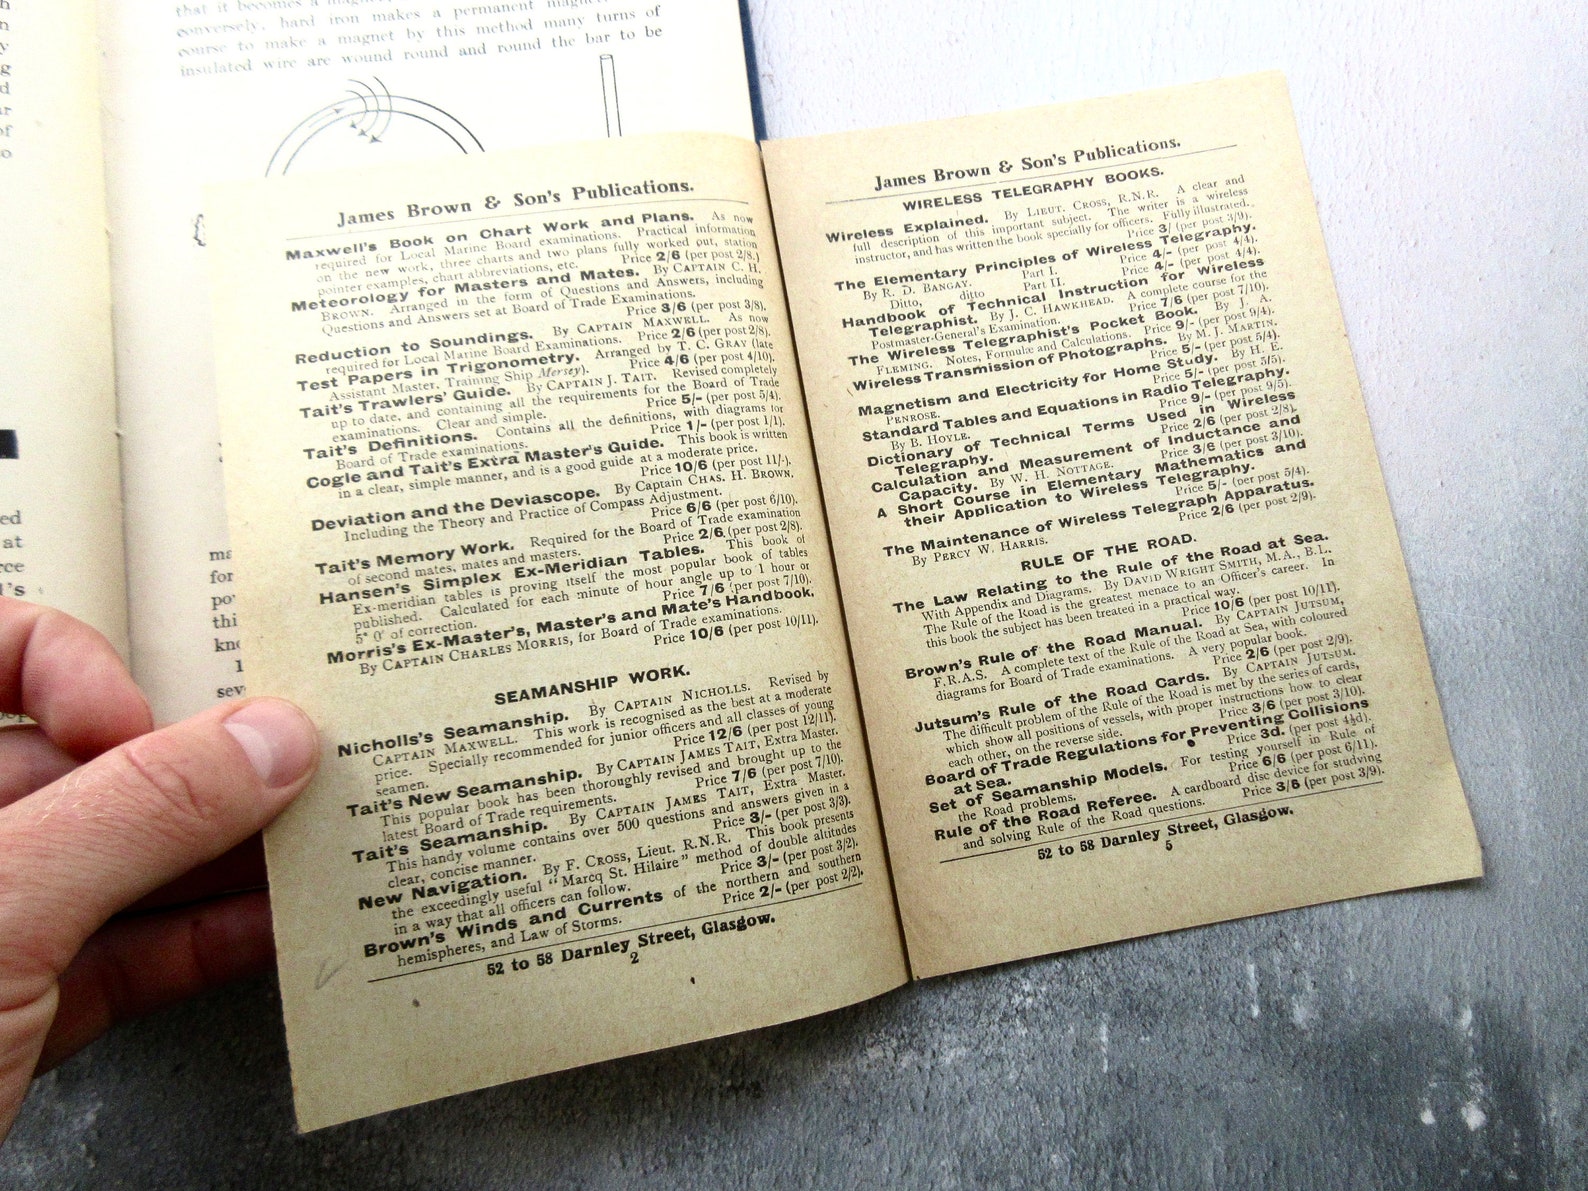 that it becomes a
conversely, hard iron makes a permanent
course to make a magnet by this method many turns of
insulated wire are wound round and round the bar to be
James Brown & Son's Publications.
Maxwell's Book on Chart Work and Plans. As now
required for Local Marine Board examinations. Practical information
on the new work, three charts and two plans fully worked out, station
pointer examples, chart abbreviations, etc. Price 2/6 (per post 2/8.)
Meteorology for Masters and Mates. By CAPTAIN C. H.
BROWN. Arranged in the form of Questions and Answers, including
Questions and Answers set at Board of Trade Examinations.
Price 3/6 (per post 3/8).
Reduction to Soundings. By CAPTAIN MAXWELL. As now
required for Local Marine Board Examinations. Price 2/6 (per post 2/8).
Test Papers in Trigonometry. Arranged by T. C. GRAY (late
Assistant Master, Training Ship Mersey). Price 4/6 (per post 4/10).
Tait's Trawlers' Guide. By CAPTAIN J. TAIT. Revised completely
up to date, and containing all the requirements for the Board of Trade
examinations. Clear and simple. Price 5/- (per post 5/4).
Tait's Definitions. Contains all the definitions, with diagrams for
Board of Trade examinations. Price 1/- (per post 1/1).
Cogle and Tait's Extra Master's Guide. This book is written
in a clear, simple manner, and is a good guide at a moderate price.
Price 10/6 (per post 11/-).
Deviation and the Deviascope. By Captain CHAS. H. BROWN,
Including the Theory and Practice of Compass Adjustment.
Price 6/6 (per post 6/10).
Tait's Memory Work. Required for the Board of Trade examination
of second mates, mates and masters. Price 2/6 (per post 2/8).
Hansen's Simplex Ex-Meridian Tables. This book of
Ex-meridian tables is proving itself the most popular book of tables
published. Calculated for each minute of hour angle up to 1 hour or
5° 0' of correction. Price 7/6 (per post 7/10).
Morris's Ex-Master's, Master's and Mate's Handbook,
By CAPTAIN CHARLES MORRIS, for Board of Trade examinations.
Price 10/6 (per post 10/11).
SEAMANSHIP WORK.
Nicholls's Seamanship. By CAPTAIN NICHOLLS. Revised by
CAPTAIN MAXWELL. This work is recognised as the best at a moderate
price. Specially recommended for junior officers and all classes of young
seamen. Price 12/6 (per post 12/11).
Tait's New Seamanship. By CAPTAIN JAMES TAIT, Extra Master.
This popular book has been thoroughly revised and brought up to the
latest Board of Trade requirements. Price 7/6 (per post 7/10).
Tait's Seamanship. By CAPTAIN JAMES TAIT, Extra Master.
This handy volume contains over 500 questions and answers given in a
clear, concise manner. Price 3/- (per post 3/3).
New Navigation. By F. CROSS, Lieut. R.N.R. This book presents
the exceedingly useful "Marcq St. Hilaire" method of double altitudes
in a way that all officers can follow. Price 3/- (per post 3/2).
Brown's Winds and Currents of the northern and southern
hemispheres, and Law of Storms. Price 2/- (per post 2/2).
52 to 58 Darnley Street, Glasgow.
2
James Brown & Son's Publications.
WIRELESS TELEGRAPHY BOOKS.
Wireless Explained. By LIEUT. CROSS, R.N.R. A clear and
full description of this important subject. The writer is a wireless
instructor, and has written the book specially for officers. Fully illustrated.
Price 3/ (per post 3/9).
The Elementary Principles of Wireless Telegraphy.
By R. D. BANGAY. Part I. Price 4/- (per post 4/4).
Ditto, ditto Part II. Price 4/- (per post 4/4).
Handbook of Technical Instruction for Wireless
Telegraphist. By J. C. HAWKHEAD. A complete course for the
Postmaster-General's Examination. Price 7/6 (per post 7/10).
The Wireless Telegraphist's Pocket Book. By J. A.
FLEMING. Notes, Formulæ and Calculations. Price 9/- (per post 9/4).
Wireless Transmission of Photographs. By M. J. MARTIN.
Price 5/- (per post 5/4).
Magnetism and Electricity for Home Study. By H. E.
PENROSE. Price 5/- (per post 5/5).
Standard Tables and Equations in Radio Telegraphy.
By B. HOYLE. Price 9/- (per post 9/5).
Dictionary of Technical Terms Used in Wireless
Telegraphy. Price 2/6 (per post 2/8).
Calculation and Measurement of Inductance and
Capacity. By W. H. NOTTAGE. Price 3/6 (per post 3/10).
A Short Course in Elementary Mathematics and
their Application to Wireless Telegraphy.
Price 5/- (per post 5/4).
The Maintenance of Wireless Telegraph Apparatus.
By PERCY W. HARRIS. Price 2/6 (per post 2/9).
RULE OF THE ROAD.
The Law Relating to the Rule of the Road at Sea.
With Appendix and Diagrams. By DAVID WRIGHT SMITH, M.A., B.L.
The Rule of the Road is the greatest menace to an Officer's career. In
this book the subject has been treated in a practical way.
Price 10/6 (per post 10/11).
Brown's Rule of the Road Manual. By CAPTAIN JUTSUM,
F.R.A.S. A complete text of the Rule of the Road at Sea, with coloured
diagrams for Board of Trade examinations. A very popular book.
Price 2/6 (per post 2/9).
Jutsum's Rule of the Road Cards. By CAPTAIN JUTSUM.
The difficult problem of the Rule of the Road is met by the series of cards,
which show all positions of vessels, with proper instructions how to clear
each other, on the reverse side. Price 3/6 (per post 3/10).
Board of Trade Regulations for Preventing Collisions
at Sea. Price 3d. (per post 4½d).
Set of Seamanship Models. For testing yourself in Rule of
the Road problems. Price 6/6 (per post 6/11).
Rule of the Road Referee. A cardboard disc device for studying
and solving Rule of the Road questions. Price 3/6 (per post 3/9).
52 to 58 Darnley Street, Glasgow.
5